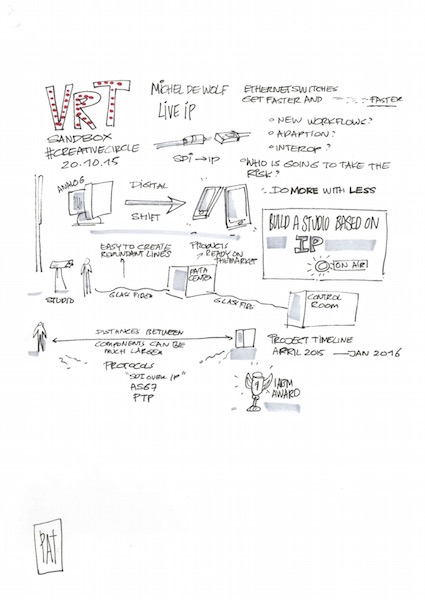 VRT
SANDBOX
#CREATIVECIRCLE
20.10.15
MICHEL DE WOLF
LIVE IP
SDI → IP
ETHERNET SWITCHES
GET FASTER AND FASTER
NEW WORKFLOWS?
ADAPTION?
INTEROP?
WHO IS GOING TO TAKE THE
RISK?
DO MORE WITH LESS
ANALOG
DIGITAL
SHIFT
BUILD A STUDIO BASED ON
IP
ON AIR
EASY TO CREATE
REDUNDANT LINES
PRODUCTS
READY ON
THE MARKET
DATA
CENTER
STUDIO
GLASFIBER
GLASFIBER
CONTROL
ROOM
DISTANCES BETWEEN
COMPONENTS CAN BE
MUCH LARGER
PROJECT TIMELINE
APRIL 2015 — JAN 2016
PROTOCOLS
"SDI OVER IP"
AS67
PTP
1
IABM
AWARD
PAT